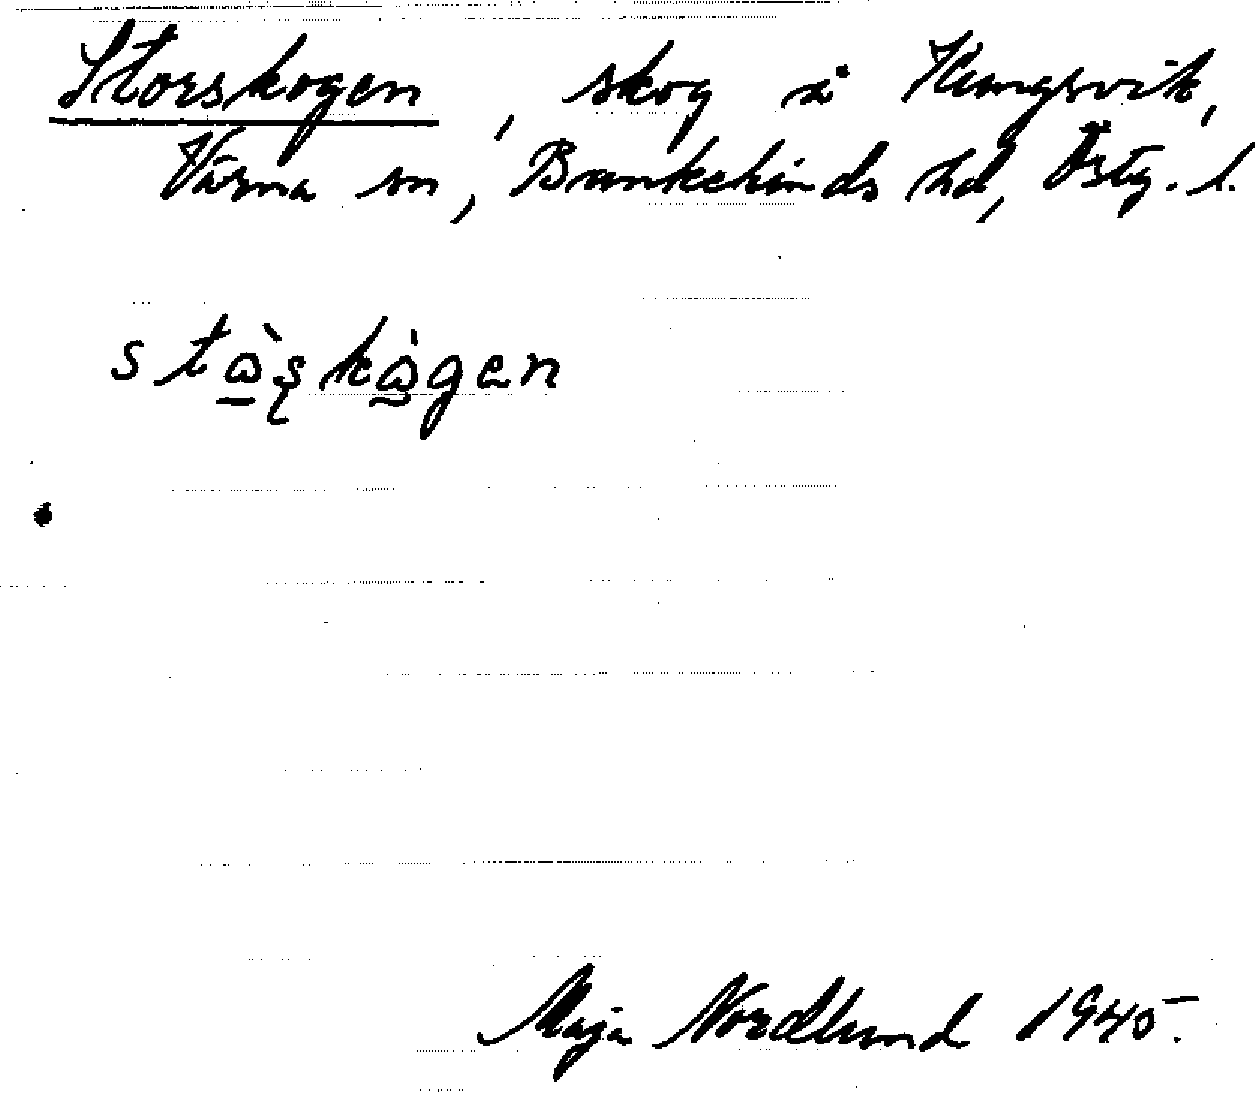 Storskogen, skog i Kungsvik,
Värna sn, Bankekinds hd, Östg. l.
Maja Nordlund 1945.